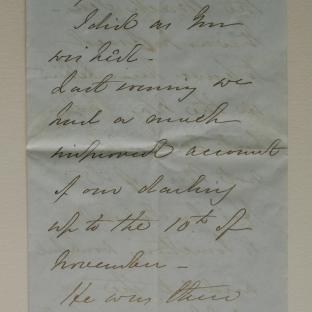 I did as you
wished -
Last evening we
had a much
improved account
of our darling
up to the 10th of
November -
He was then